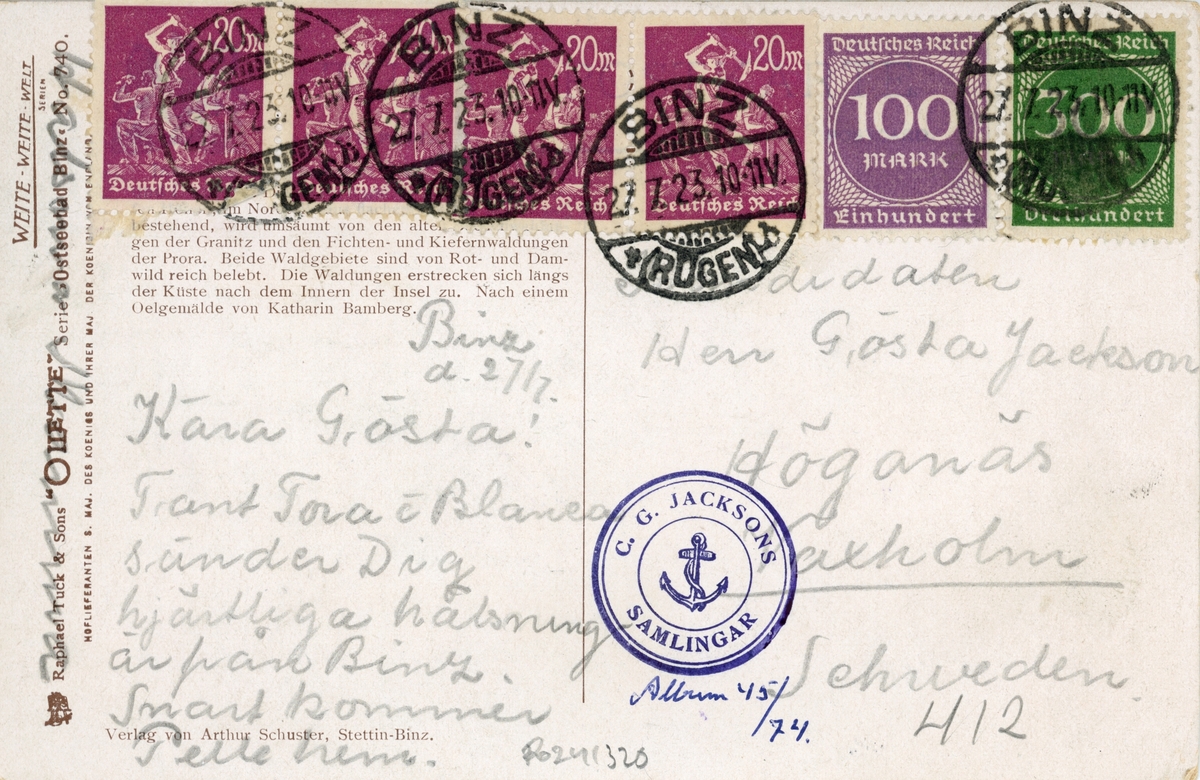 20m
20m
20m
Deutsches Reich
Deutsches Reich
Deutsches Reich
Deutsches Reich
100
MARK
Einhundert
Deutsches Reich
300
Dreihundert
BINZ
27.7.23.10-11V.
(RÜGEN)
BINZ
27.7.23.10-11V.
(RÜGEN)
BINZ
27.7.23.10-11V.
(RÜGEN)
BINZ
27.7.23.10-11V.
WEITE-WEITE-WELT
SERIEN
Raphael Tuck & Sons "OILETTE" Serie Ostseebad Binz No. 740.
HOFLIEFERANTEN S. MAJ. DES KOENIGS UND IHRER MAJ. DER KOENIGIN VON ENGLAND
bestehend, wird umsäumt von den alten
gen der Granitz und den Fichten- und Kiefernwaldungen
der Prora. Beide Waldgebiete sind von Rot- und Dam-
wild reich belebt. Die Waldungen erstrecken sich längs
der Küste nach dem Innern der Insel zu. Nach einem
Oelgemälde von Katharin Bamberg.
Binz
d. 27/7.
Kära Gösta!
Tant Tora o Blanca
sänder Dig
hjärtliga hälsning-
ar från Binz.
Snart kommer
Pelle hem.
Verlag von Arthur Schuster, Stettin-Binz.
Kandidaten
Herr Gösta Jackson
Höganäs
Vaxholm
Schweden.
C. G. JACKSONS
SAMLINGAR
Album 45/74.
412